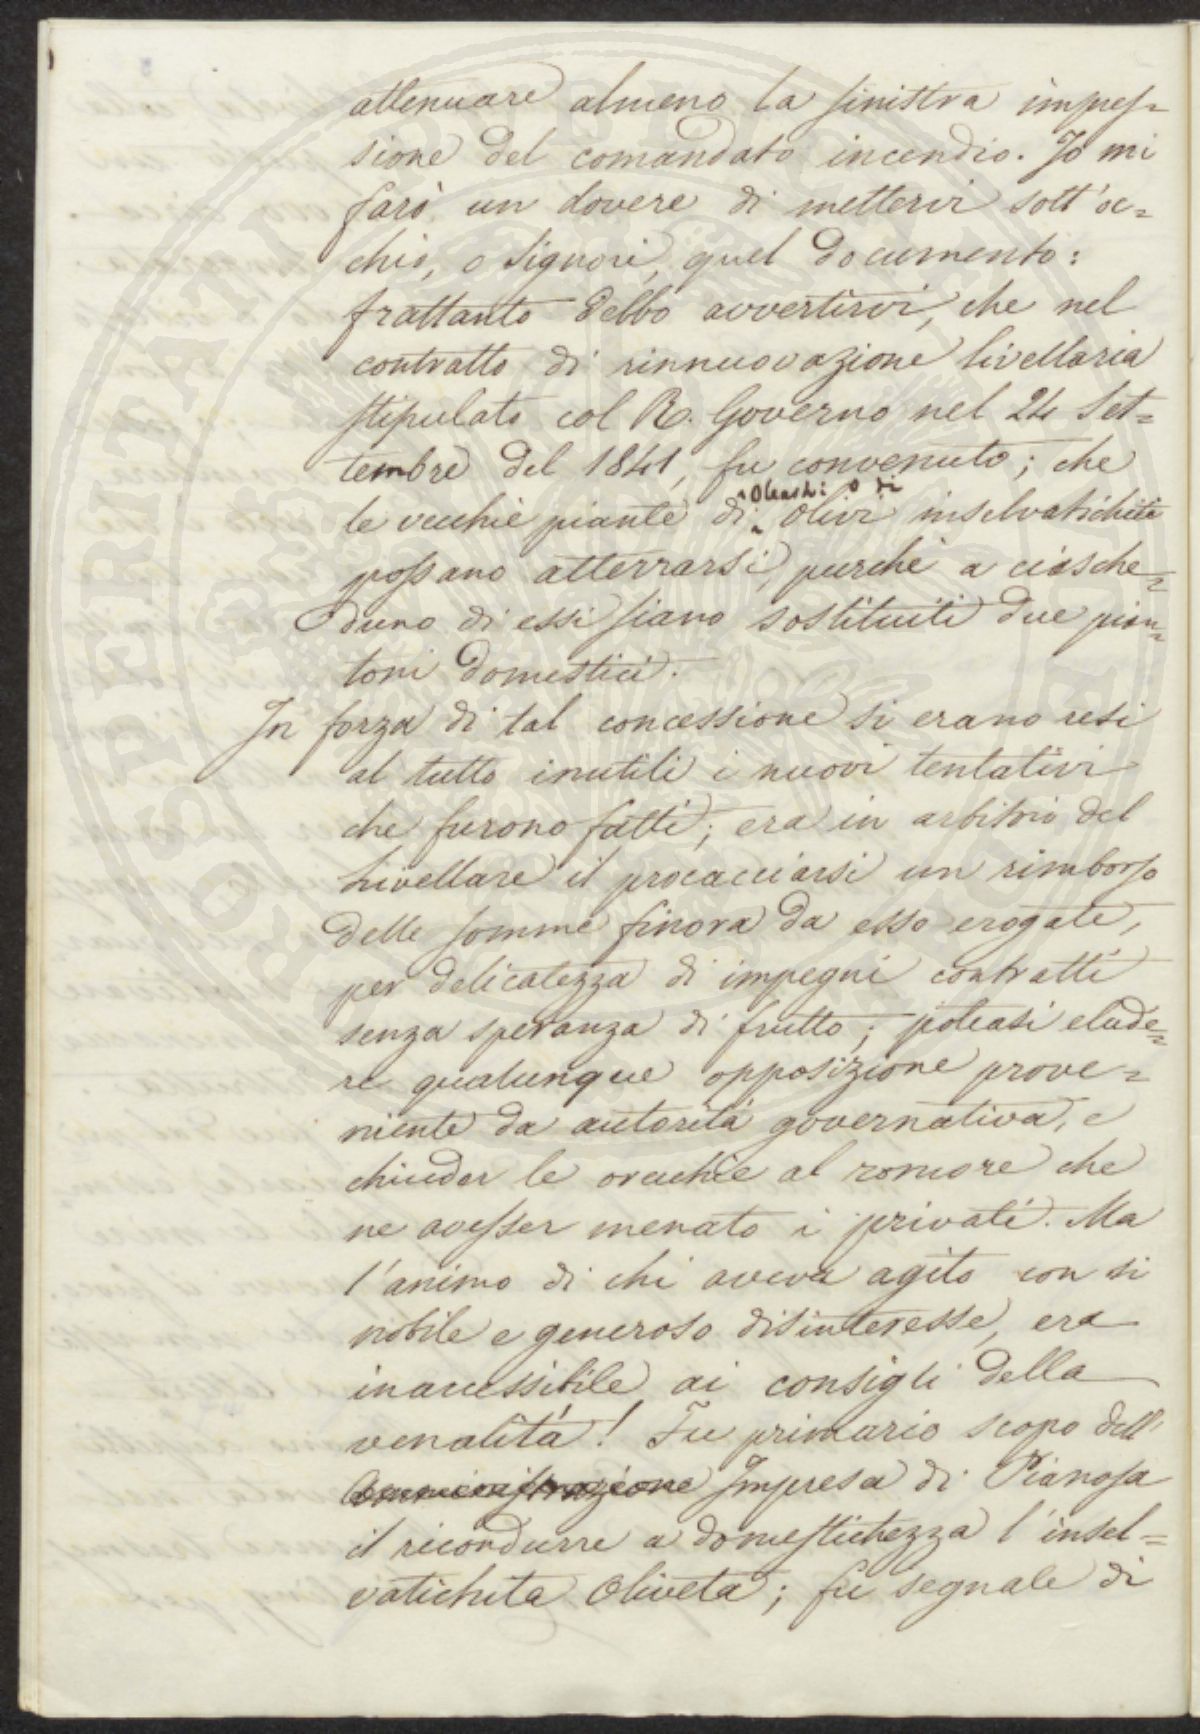 attenuare almeno la sinistra impres=
sione del comandato incendio. Io mi
farò un dovere di mettervi sott'oc=
chio, o Signori, quel documento:
frattanto debbo avvertirvi, che nel
contratto di rinnuovazione livellaria
stipulato col R. Governo nel 24 Set=
tembre del 1841, fu convenuto; che
Oleastri o di
le vecchie piante di olivi inselvatichiti
possano atterrarsi, purchè a ciasche=
duno di essi siano sostituiti due pian=
toni domestici.
In forza di tal concessione si erano resi
al tutto inutili i nuovi tentativi
che furono fatti; era in arbitrio del
Livellare il procacciarsi un rimborso
delle somme finora da esso erogate,
per delicatezza di impegni contratti
senza speranza di frutto; poteasi elude=
re qualunque opposizione prove=
niente da autorità governativa, e
chiuder le orecchie al romore che
ne avesser menato i privati. Ma
l'animo di chi aveva agito con sì
nobile e generoso disinteresse, era
inaccessibile ai consigli della
venalità! Fu primario scopo dell'
Amministrazione Impresa di Pianosa
il ricondurre a domestichezza l'insel=
vatichita Oliveta; fu segnale di
PROSPERITATI PUBLICAE